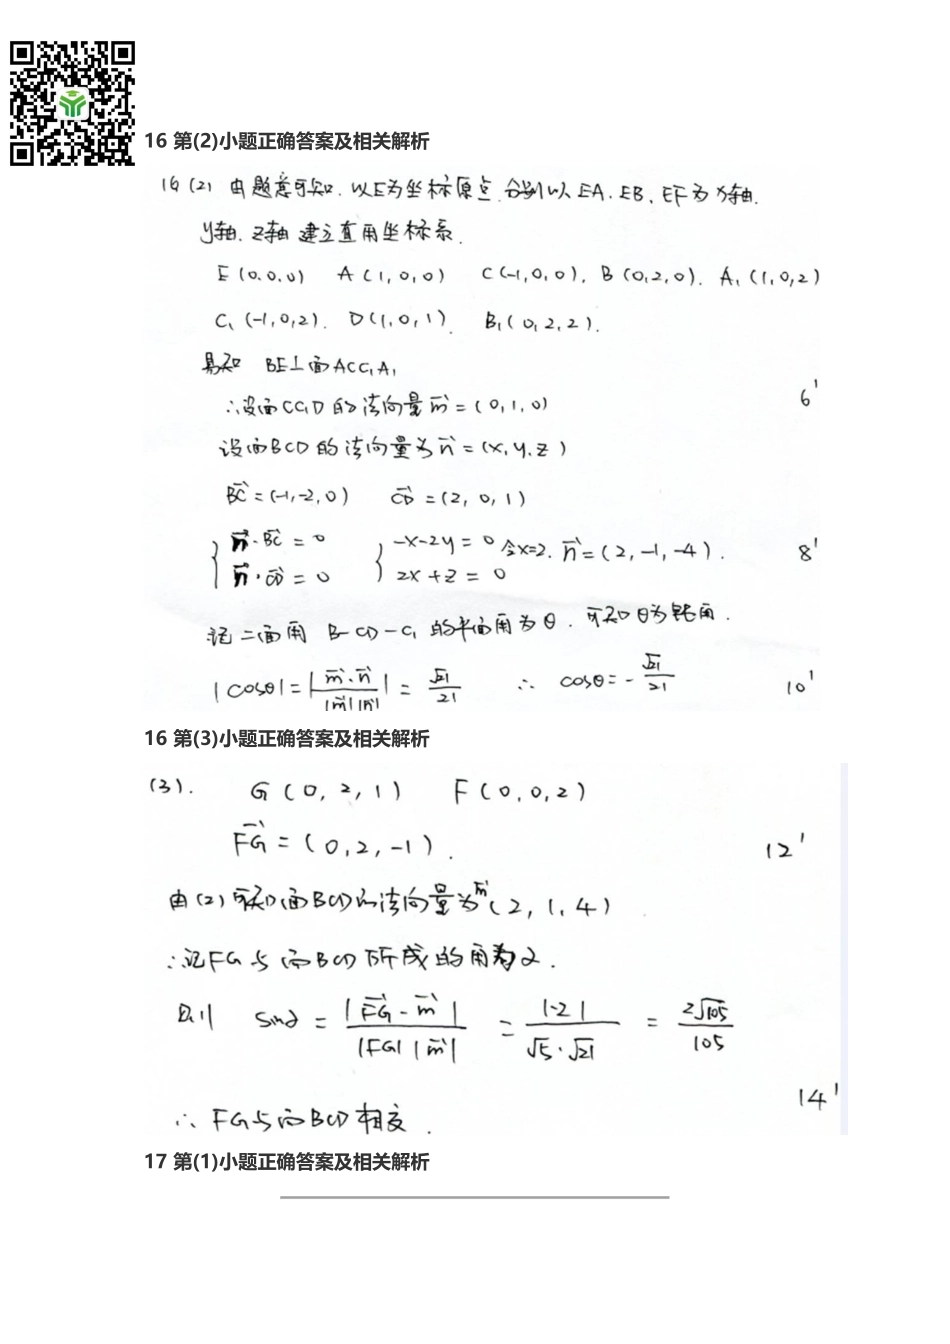 16 第(2)小题正确答案及相关解析
16 (2) 由题意可知. 以E为坐标原点. 分别以EA. EB. EF为x轴.
y轴. z轴 建立直角坐标系.
E (0.0.0) A (1, 0, 0) C (-1, 0, 0), B (0, 2, 0). A₁ (1, 0, 2)
C₁ (-1, 0, 2). D (1, 0, 1). B₁ (0, 2, 2).
易知 BE⊥面ACC₁A₁
∴设面CC₁D的法向量 m⃗ = (0, 1, 0) 6'
设面BCD的法向量为 n⃗ = (x, y, z)
BC⃗ = (-1, -2, 0) CD⃗ = (2, 0, 1)
{ n⃗·BC⃗ = 0 { -x-2y = 0 令x=2. n⃗ = (2, -1, -4). 8'
n⃗·CD⃗ = 0 2x+z = 0
记二面角 B-CD-C₁ 的平面角为θ. 可知θ为钝角.
|cosθ| = |m⃗·n⃗ / |m⃗||n⃗|| = √21/21 ∴ cosθ = -√21/21 10'
16 第(3)小题正确答案及相关解析
(3). G (0, 2, 1) F (0, 0, 2)
FG⃗ = (0, 2, -1). 12'
由(2)可知面BCD的法向量为 m⃗ (2, 1, 4)
∴记FG与面BCD所成的角为α.
则 sinα = |FG⃗·m⃗| / |FG||m⃗| = |-2| / √5·√21 = 2√105/105
14'
∴ FG与面BCD相交.
17 第(1)小题正确答案及相关解析